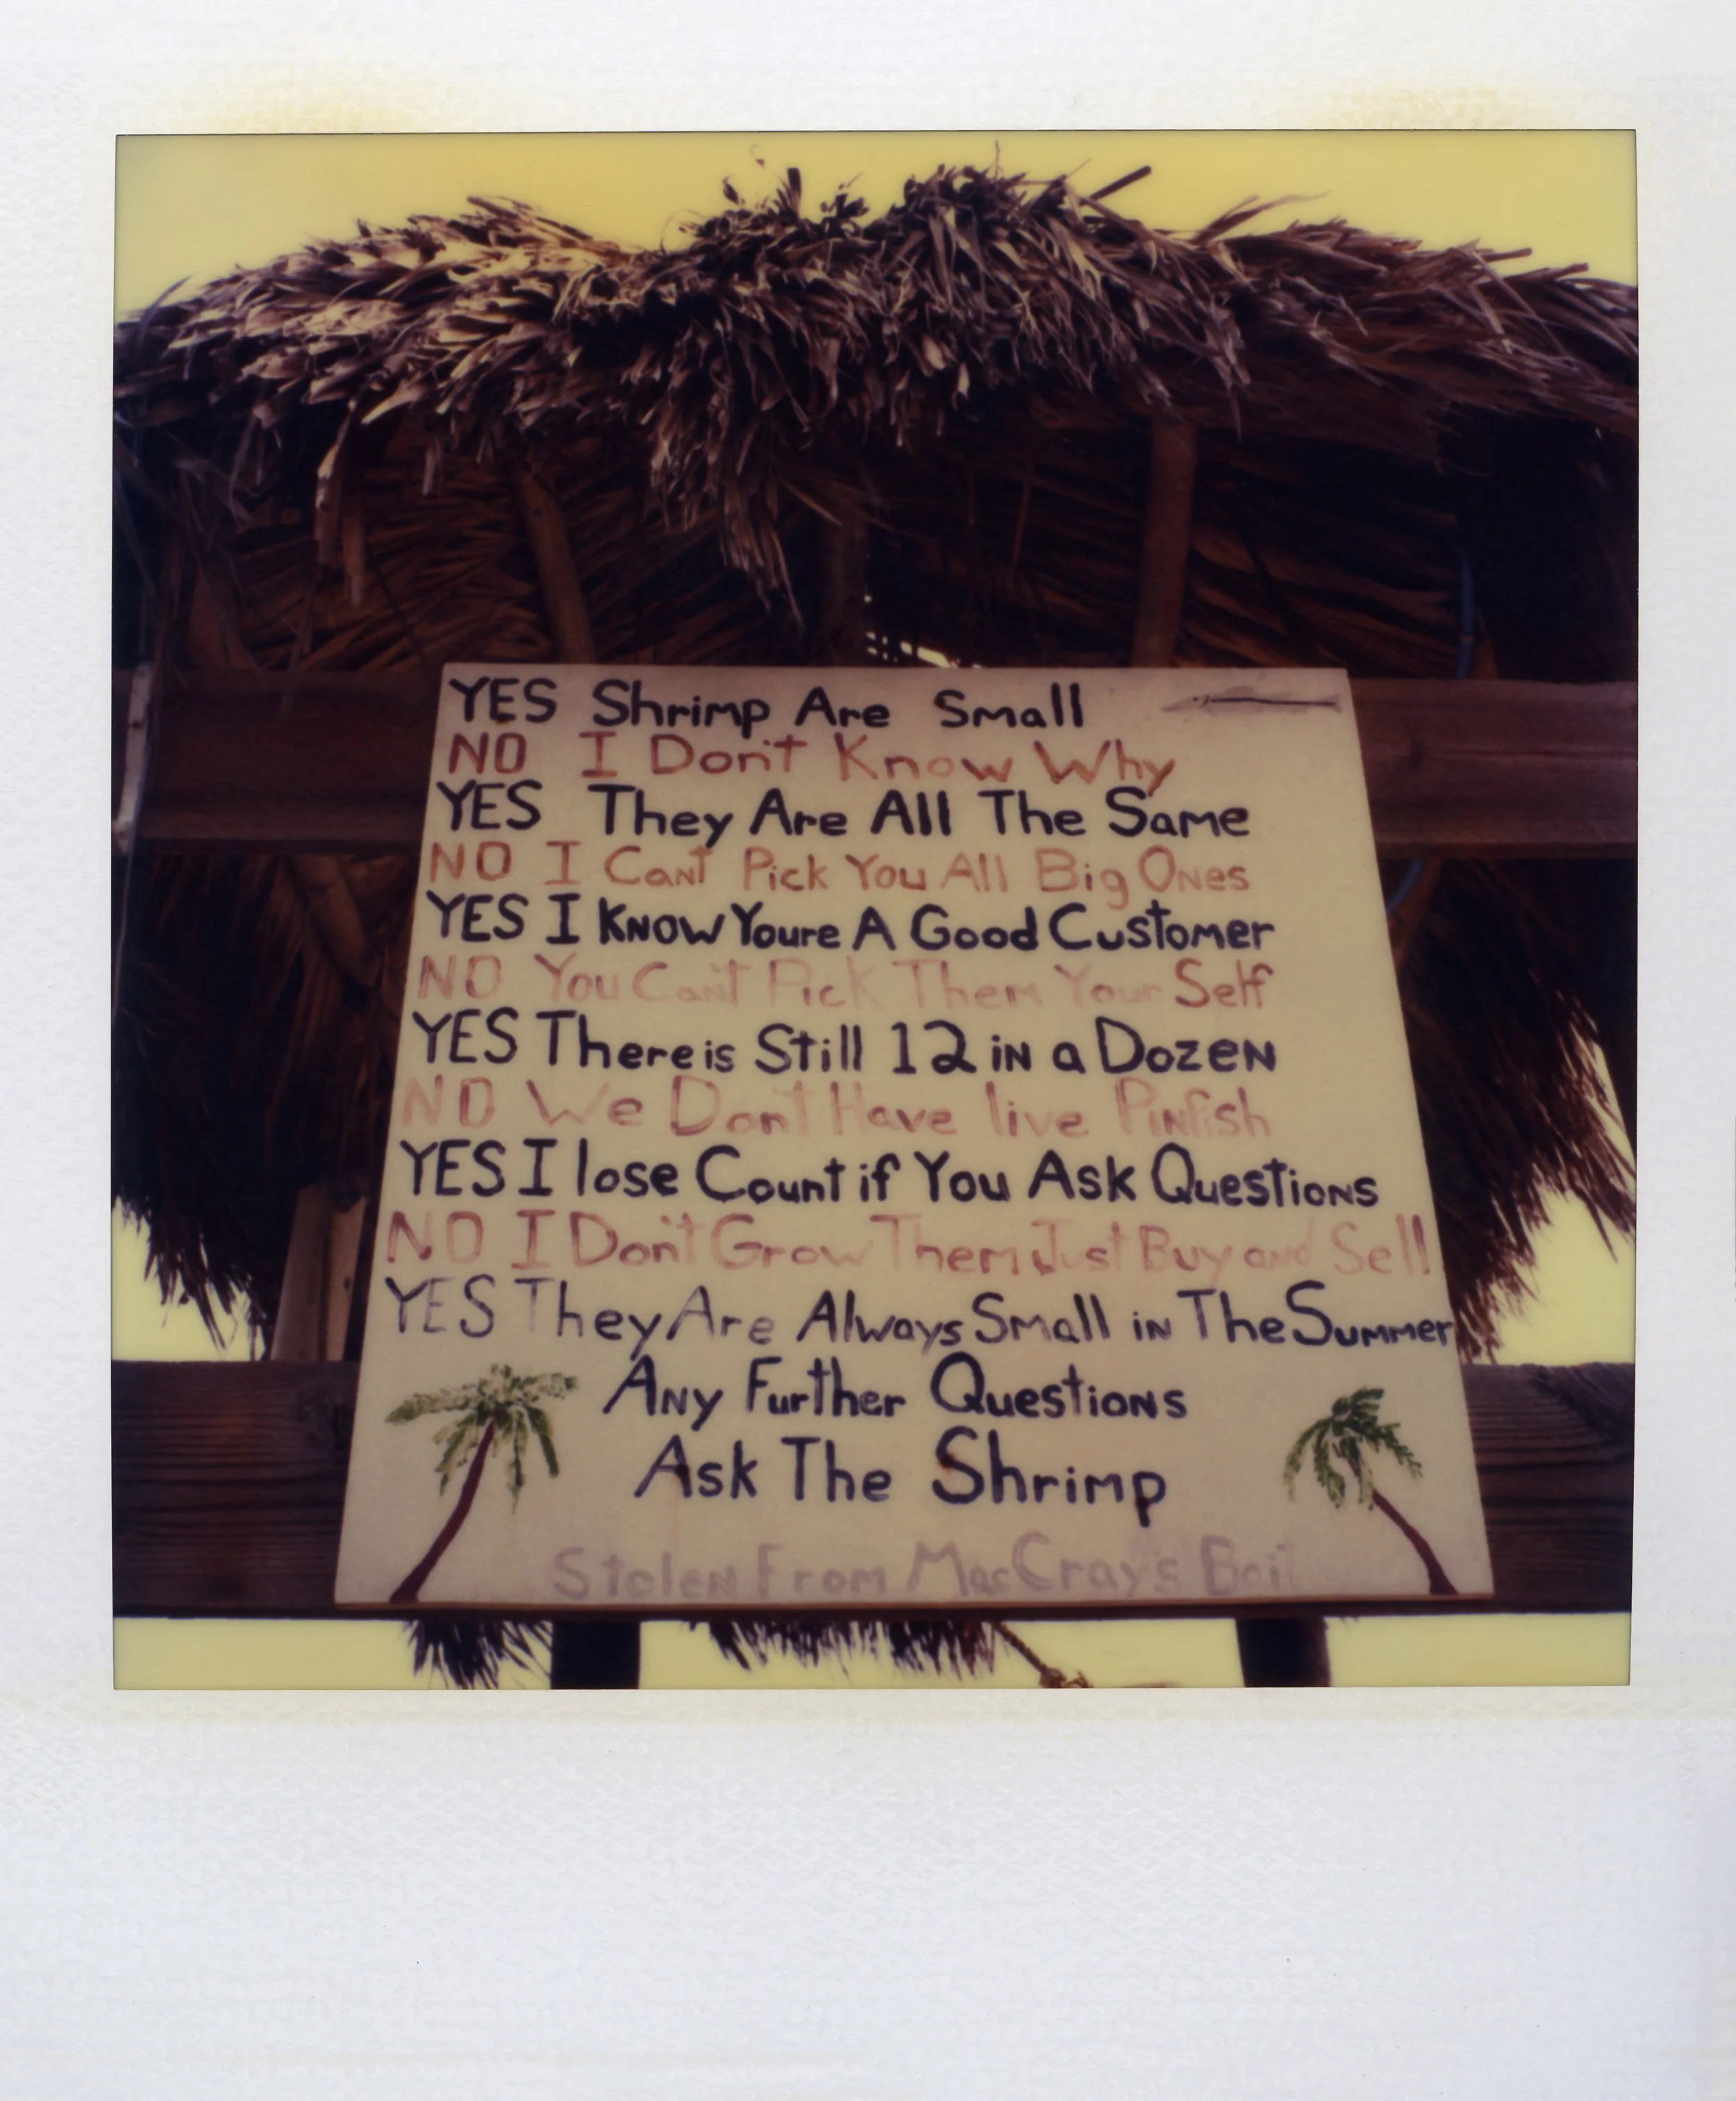 YES Shrimp Are Small
NO I Don't Know Why
YES They Are All The Same
NO I Can't Pick You All Big Ones
YES I Know Youre A Good Customer
NO You Can't Pick Them Your Self
YES There is Still 12 in a Dozen
NO We Don't Have live Pinfish
YES I lose Count if You Ask Questions
NO I Don't Grow Them Just Buy and Sell
YES They Are Always Small in The Summer
Any Further Questions
Ask The Shrimp
Stolen From MacCray's Bait